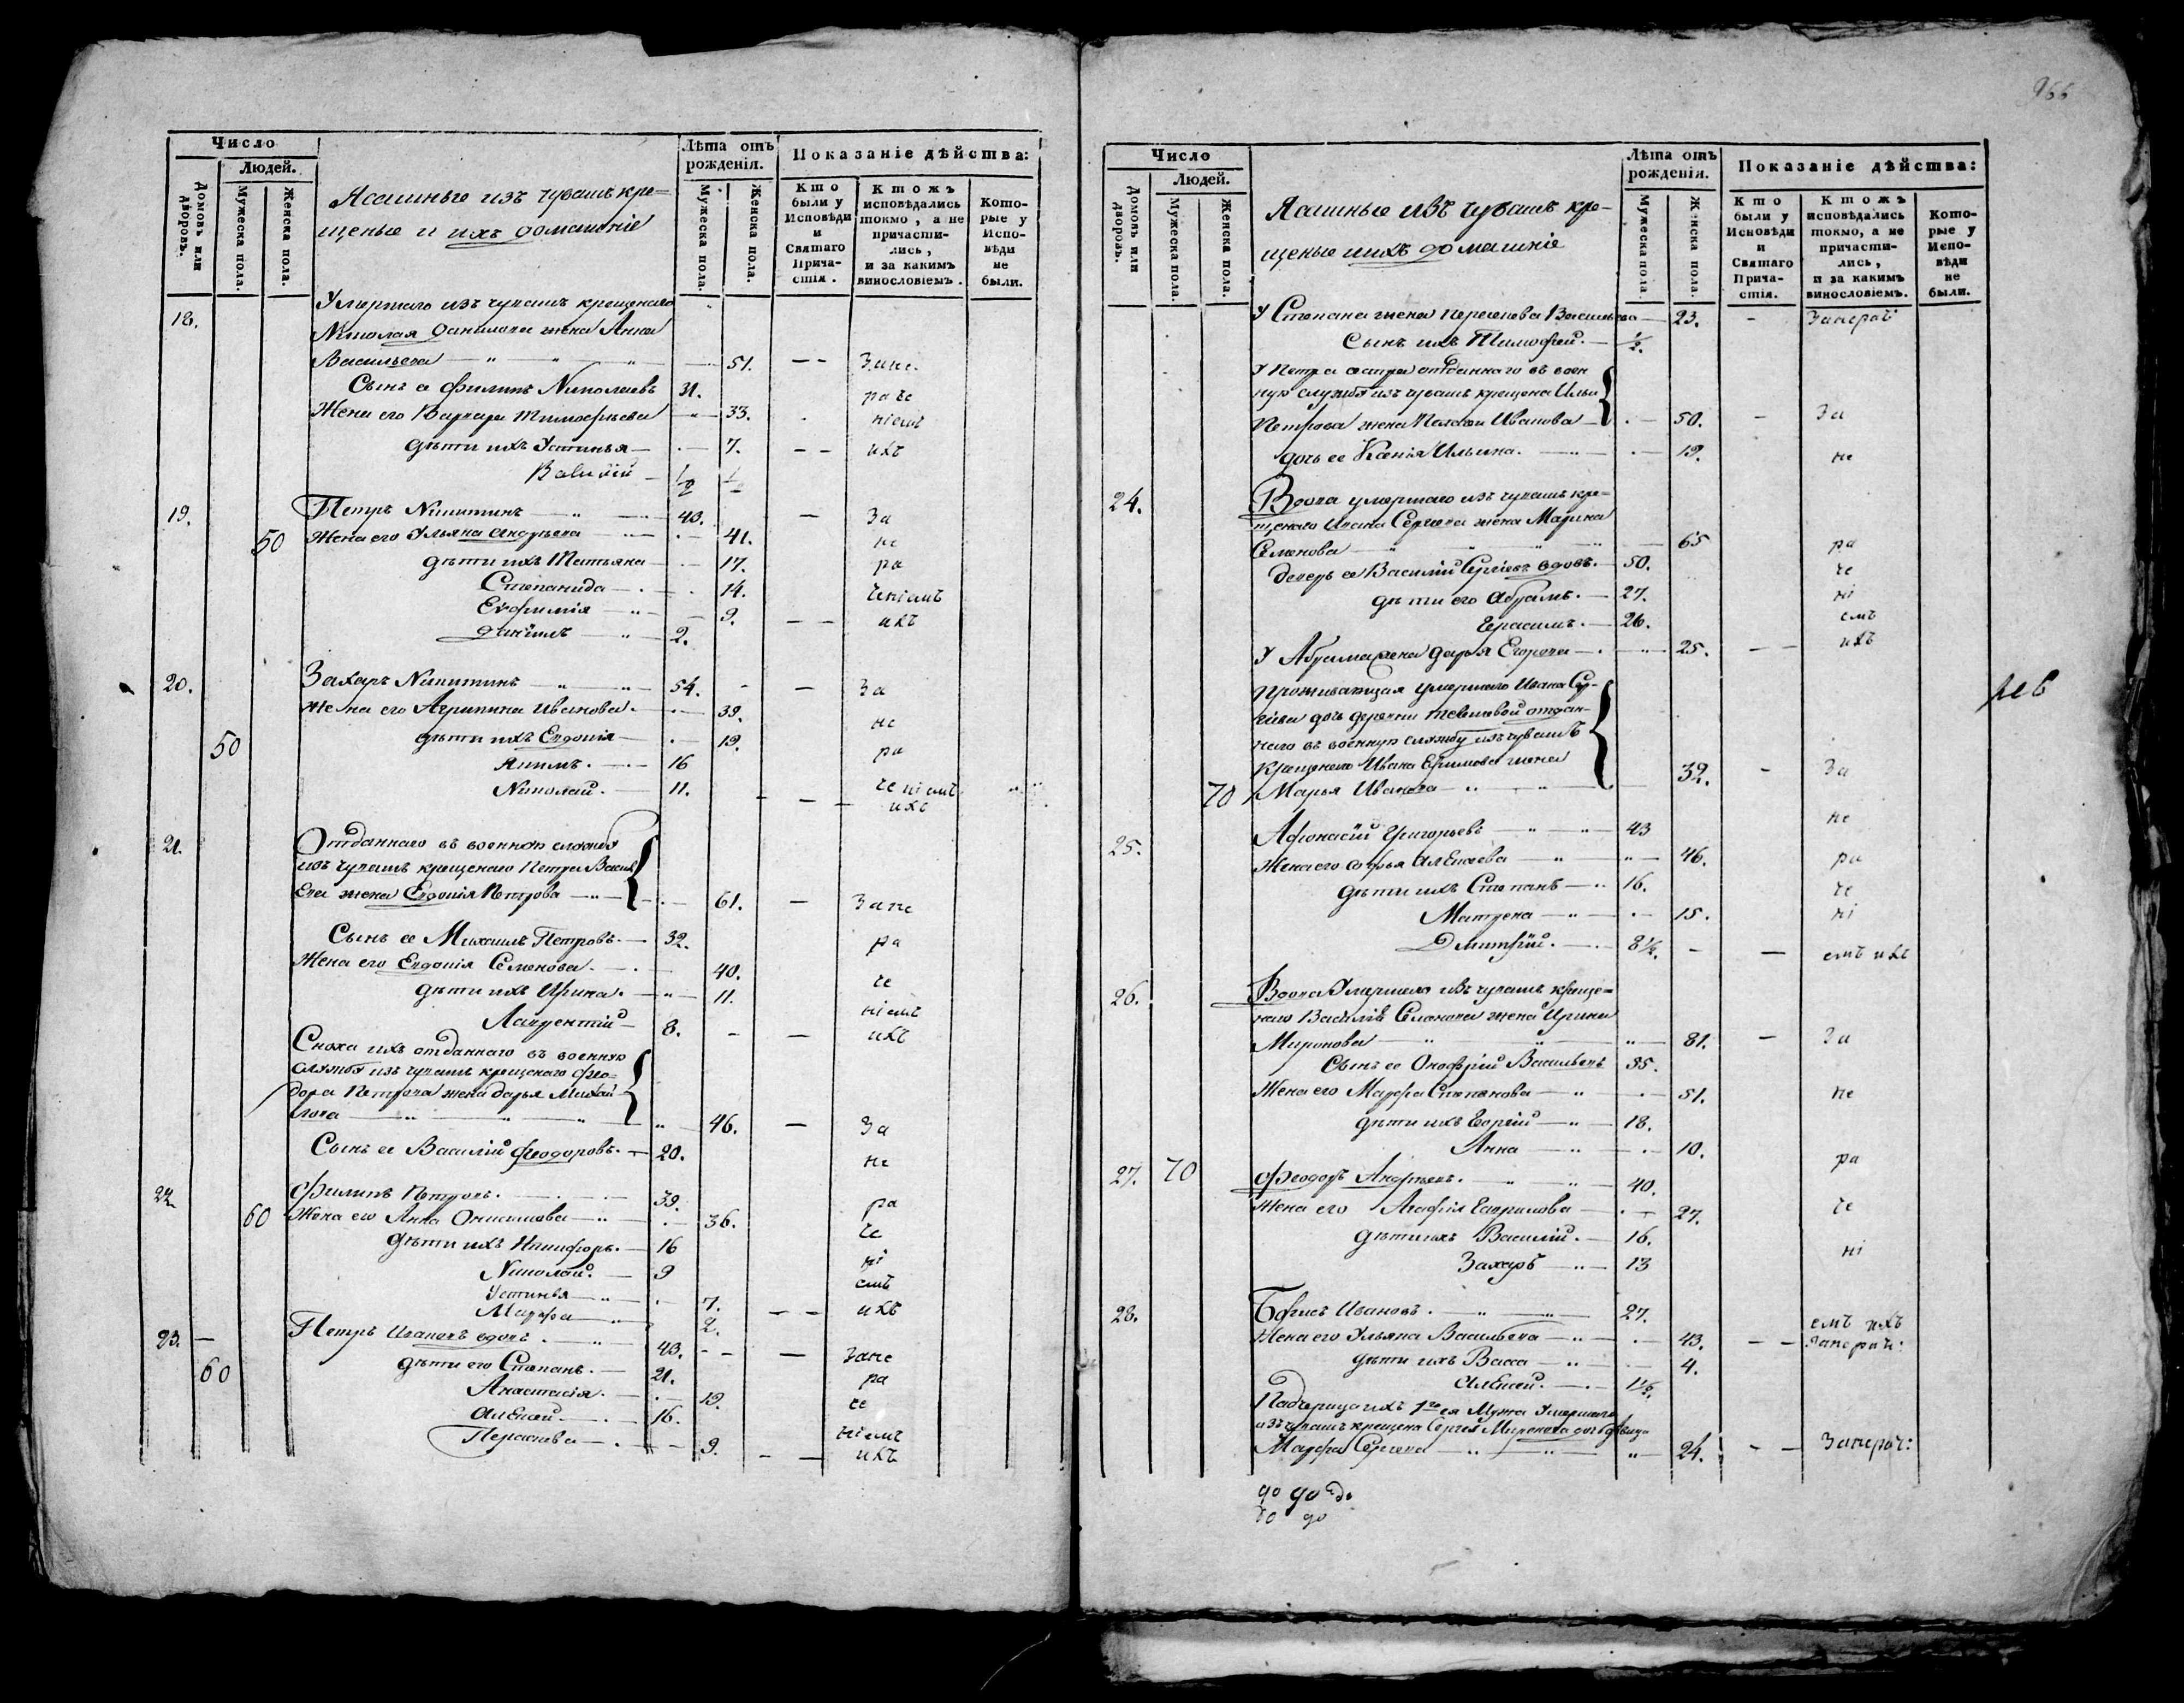 Число
Людей.
Домовъ или дворовъ.
Мужеска пола.
Женска пола.
Ясашные изъ чувашъ кре=
щеные и ихъ домашніе
Лѣта отъ рожденія.
Мужеска пола.
Женска пола.
Показаніе дѣйства:
Кто были у Исповѣди и Святаго Прича-стія.
Ктожъ исповѣдались токмо, а не причасти-лись, и за какимъ винословіемъ.
Кото-рые у Испо-вѣди не были.
18. Умершаго изъ чувашъ крещенаго
Николая Данилова жена Анна
Васильева 51. Зане
Сынъ ея Филипъ Николаевъ 31. ра че
Жена его Варвара Тимофѣева 33. ніемъ
дѣти ихъ Устинья 7. ихъ
19. Петръ Никитинъ 43. За
50 Жена его Ульяна Андреева 41. не
дѣти ихъ Татьяна 17. ра
Степанида 14. ченіемъ
Евфимія 9. ихъ
Даніилъ 2.
20. Захаръ Никитинъ 54. За
Жена его Агрипина Иванова 39. не
50 дѣти ихъ Евдокія 19. ра
Якимъ 16
Николай 11. ченіемъ
ихъ
21. Отданнаго въ военную службу
изъ чувашъ крещенаго Петра Василь
ева жена Евдокія Петрова 61. Зане
Сынъ ее Михаилъ Петровъ 32. ра
Жена его Евдокія Семенова 40. че
дѣти ихъ Ирина 11. ніемъ
Лаврентій 8. ихъ
Сноха ихъ отданнаго въ военную
службу изъ чувашъ крещенаго Фео=
дора Петрова жена Дарья Михай
лова 46. За
Сынъ ее Василій Феодоровъ 20. не
22. Филипъ Петровъ 39. ра
60 Жена его Анна Онисимова 36. че
дѣти ихъ Никифоръ 16 ні
Николай 9 емъ
Устинья 7. ихъ
Марфа 2.
23. Петръ Ивановъ вдовъ 43. Зане
60 дѣти его Степанъ 21. ра
Анастасія 19. че
Алексей 16. ніемъ
Перасковья 9. ихъ
966
Число
Людей.
Домовъ или дворовъ.
Мужеска пола.
Женска пола.
Ясашные изъ чувашъ кре-
щеные и ихъ домашніе
Лѣта отъ рожденія.
Мужеска пола.
Женска пола.
Показаніе дѣйства:
Кто были у Исповѣди и Святаго Прича-стія.
Ктожъ исповѣдались токмо, а не причасти-лись, и за какимъ винословіемъ.
Кото-рые у Испо-вѣди не были.
У Степана жена Васильева 23. Занерач
Сынъ ихъ Тимофей ½.
У Петра сестра отданнаго въ воен
ную службу изъ чувашъ крещена Ильи
Петрова жена Иванова 50. За
дочь ее Ксенія Ильина 19. не
24. Вдова умершаго изъ чувашъ кре=
щенаго Ивана Сергеева жена Марина
Семенова 65 ра
Деверь ее Василій Сергіевъ вдовъ 50. че
дѣти его Абрамъ 27. ні
Герасимъ 26. емъ
У Абрама жена Дарья Егорова 25. ихъ
Проживающая умершаго Ивана Сер-
гіева дочь деревни отдан-
наго въ военную службу изъ чувашъ
крещенаго Ивана Ефимова жена
70 Марья Иванова 32. За
не
25. Афонасій Григорьевъ 43
Жена его Софья Алексеева 46. ра
дѣти ихъ Степанъ 16. че
Матрена 15. ні
Дмитрій 8½. емъ ихъ
26. Вдова умершаго изъ чувашъ креще=
наго Василія Семенова жена Ирина
Миронова 81. За
Сынъ ее Онофрій Васильевъ 35.
Жена его Марфа Степанова 51. не
дѣти ихъ Георгій 18.
Анна 10. ра
27. 70 Феодоръ Андреевъ 40.
Жена его Агафія Гаврилова 27. че
дѣти ихъ Василій 16.
Захаръ 13 ні
28. Борисъ Ивановъ 27. емъ ихъ
Жена его Ульяна Васильева 43. Занерач:
дѣти ихъ Васса 4.
Алексей 1½.
Падчерица ихъ 1го ея мужа умершаго
изъ чувашъ крещена Сергея Миронова дочь девица
Марфа Сергеева 24. Занерач: